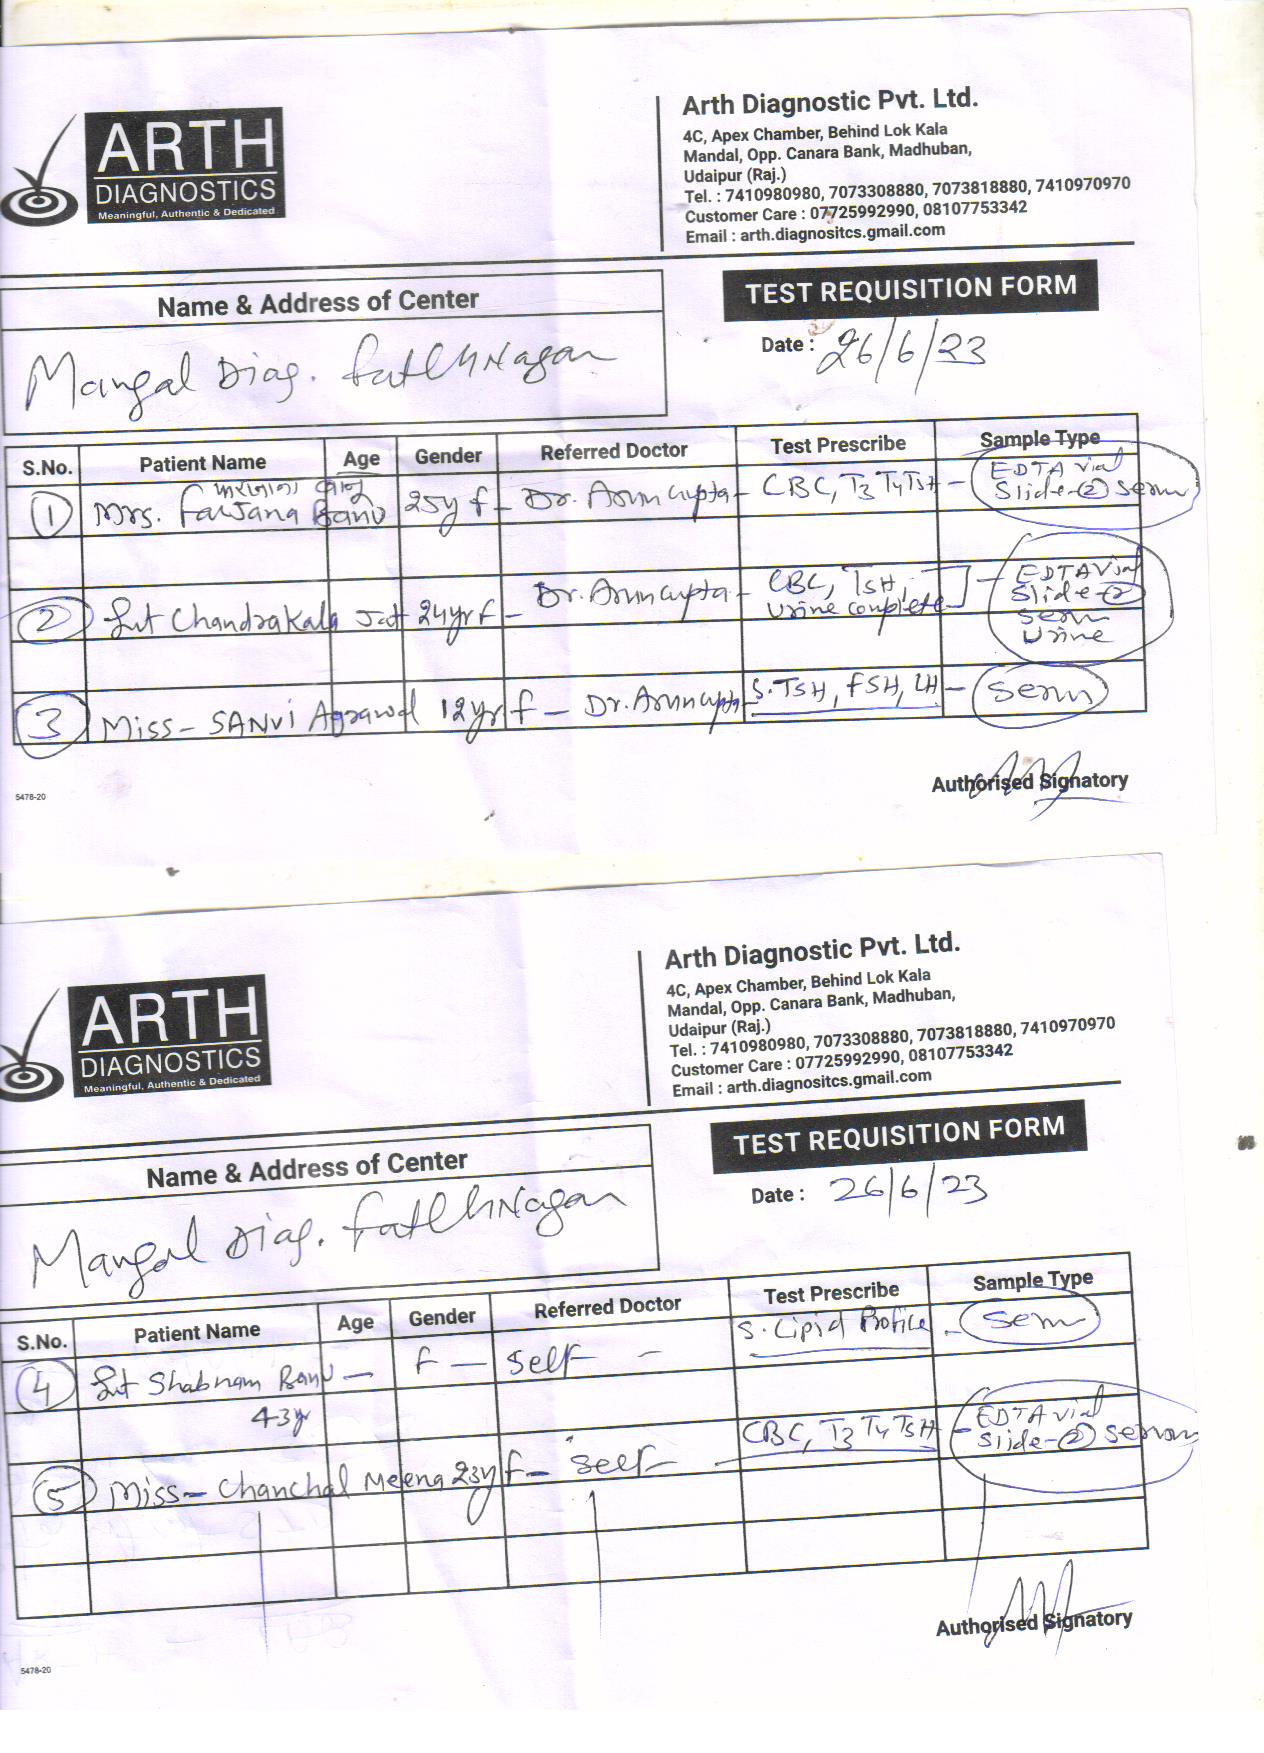 ARTH
DIAGNOSTICS
Meaningful, Authentic & Dedicated
Arth Diagnostic Pvt. Ltd.
4C, Apex Chamber, Behind Lok Kala
Mandal, Opp. Canara Bank, Madhuban,
Udaipur (Raj.)
Tel. : 7410980980, 7073308880, 7073818880, 7410970970
Customer Care : 07725992990, 08107753342
Email : arth.diagnositcs.gmail.com
Name & Address of Center
TEST REQUISITION FORM
Mangal Diag. FatehNagar
Date : 26/6/23
S.No. Patient Name Age Gender Referred Doctor Test Prescribe Sample Type
फरजाना बानू
1 Mrs. Farjana Banu 25y f - Dr. Arun Gupta - CBC, T3 T4 TSH - EDTA vial
Slide-2 Serum
2 Smt Chandrakala Jat 24yr f - Dr. Arun Gupta - CBC, TSH, - EDTA Vial
Urine complete Slide-2
Serum
Urine
3 Miss - SANVI Agrawal 12yr f - Dr. Arun Gupta - S. TSH, FSH, LH - Serum
Authorised Signatory
5478-20
ARTH
DIAGNOSTICS
Meaningful, Authentic & Dedicated
Arth Diagnostic Pvt. Ltd.
4C, Apex Chamber, Behind Lok Kala
Mandal, Opp. Canara Bank, Madhuban,
Udaipur (Raj.)
Tel. : 7410980980, 7073308880, 7073818880, 7410970970
Customer Care : 07725992990, 08107753342
Email : arth.diagnositcs.gmail.com
Name & Address of Center
TEST REQUISITION FORM
Mangal Diag. FatehNagar
Date : 26/6/23
S.No. Patient Name Age Gender Referred Doctor Test Prescribe Sample Type
4 Smt Shabnam Banu - f - Self - S. Lipid Profile - Serum
43yr
5 Miss - Chanchal Meena 23y f - Self - CBC, T3 T4 TSH - EDTA vial
Slide-2 Serum
Authorised Signatory
5478-20